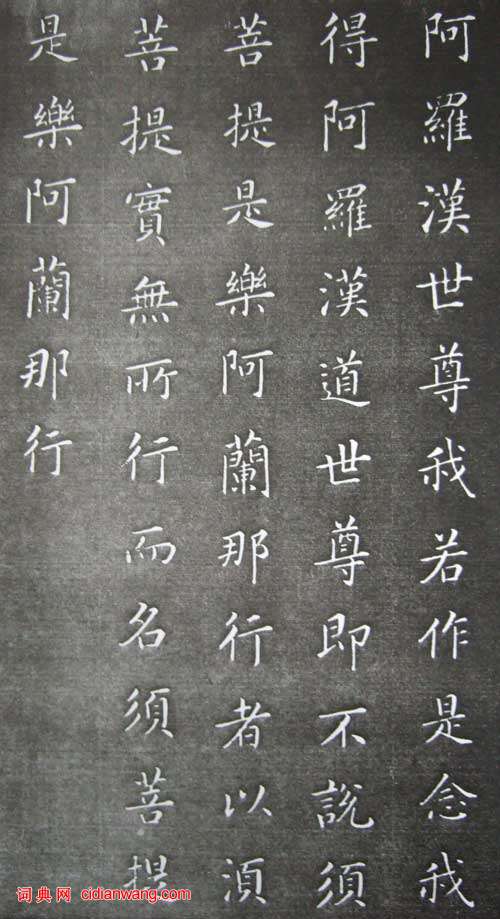 阿羅漢世尊我若作是念我
得阿羅漢道世尊即不說須
菩提是樂阿蘭那行者以須
菩提實無所行而名須菩提
是樂阿蘭那行
词典网 cidianwang.com